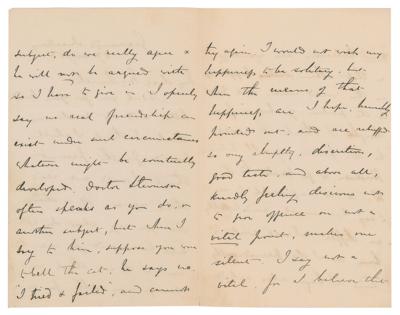 subject, do we really agree &
he will not be argued with
so I have to give in. I openly
say no real friendship can
exist under such circumstances
whatever might be eventually
developed. Doctor Stevenson
often speaks as you do, on
another subject, but when I
say to him, suppose you were
to bell the cat, he says no,
I tried & failed, and cannot
try again. I would not wish my
happiness to be solitary, but
when the means of that
happiness, are I hope, humbly
pointed out, and are rebuffed
so very abruptly, discretion,
good taste, and above all,
kindly feeling desirous not
to give offence on not a
vital point, makes one
silent. I say not a
vital, for I believe the